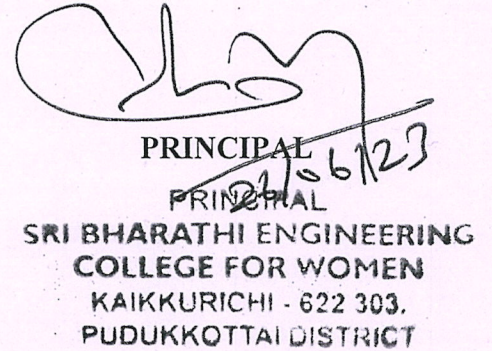 PRINCIPAL
/06/23
PRINCIPAL
SRI BHARATHI ENGINEERING
COLLEGE FOR WOMEN
KAIKKURICHI - 622 303.
PUDUKKOTTAI DISTRICT